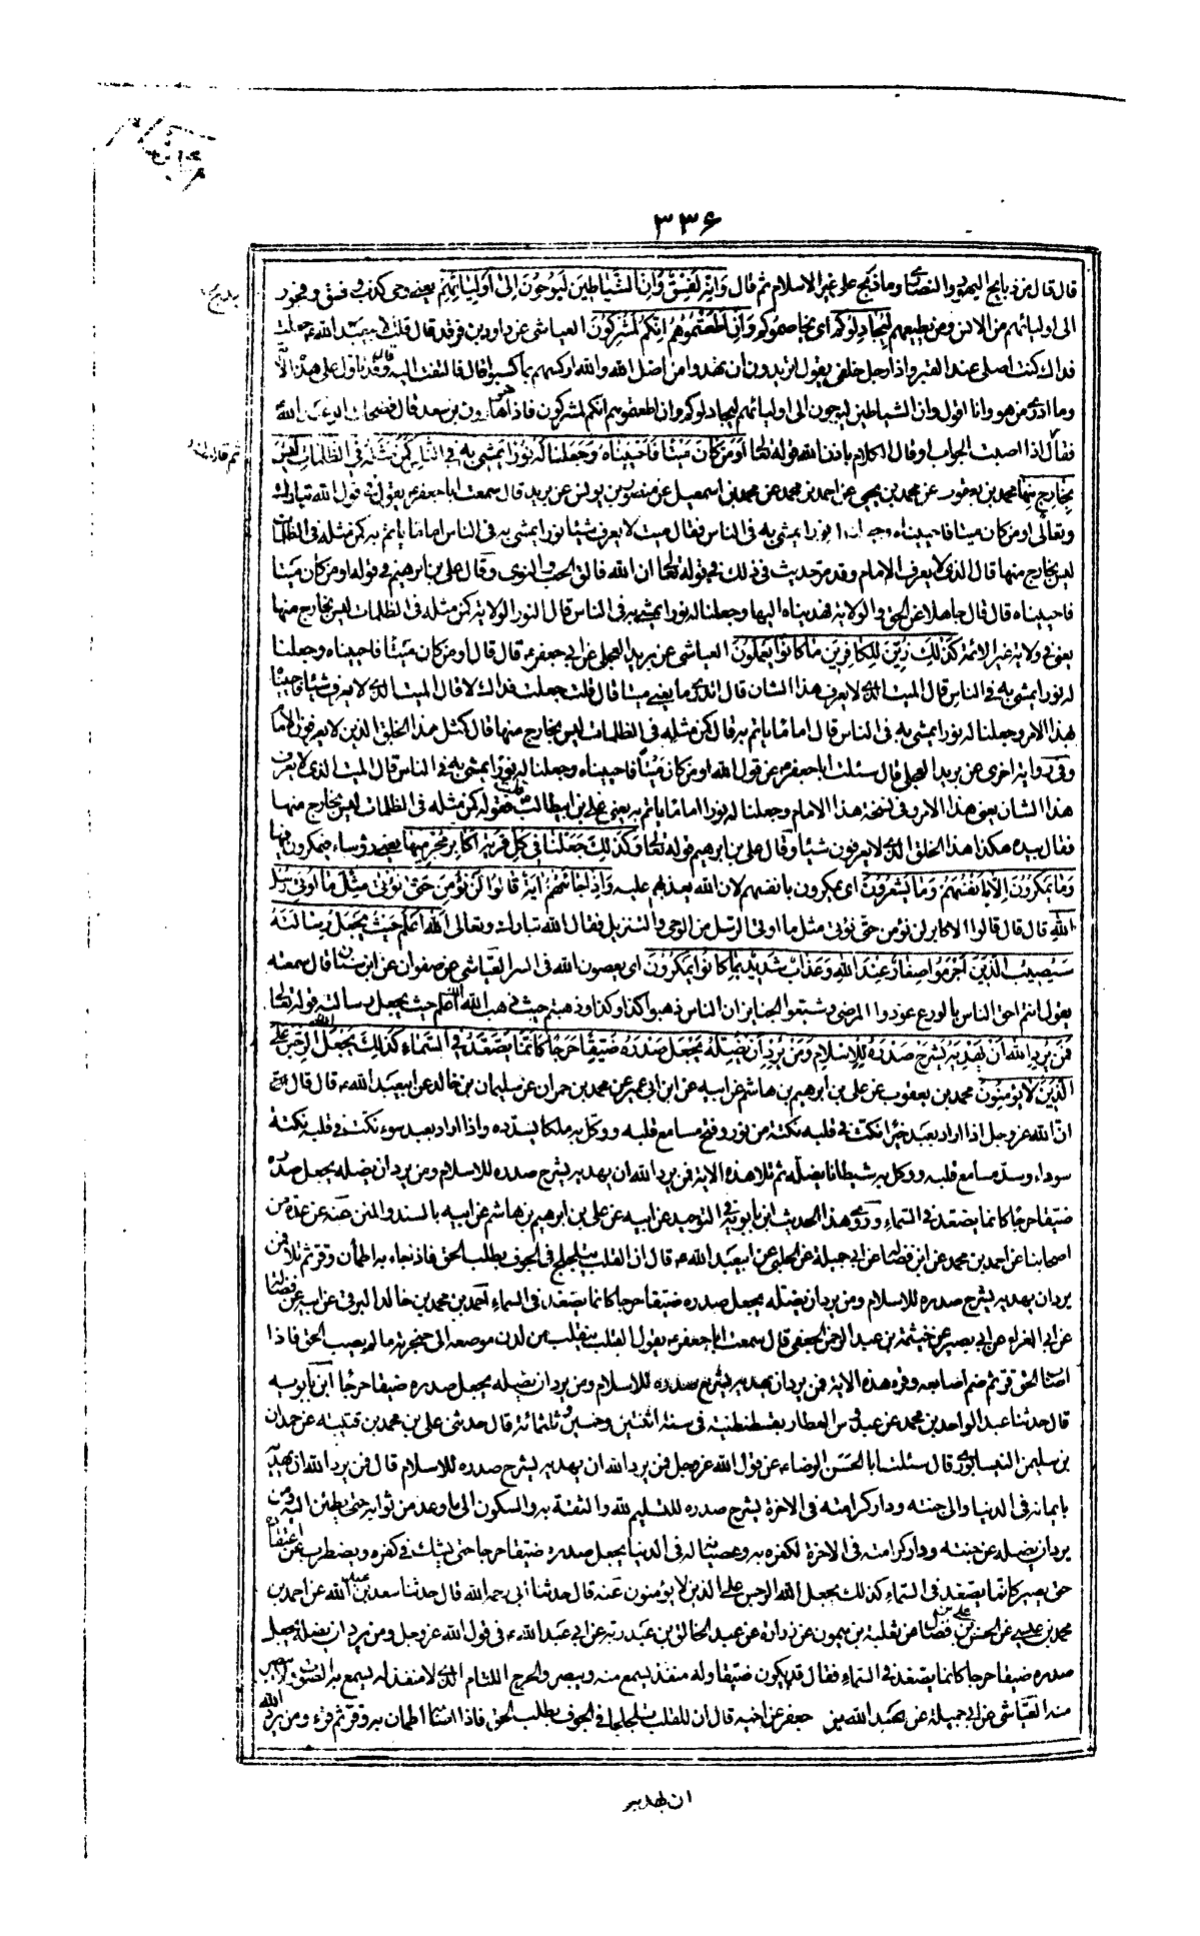 ٣٣۶
قال قال من ذبايح اليهود والنصارى وما ذبح على غير الاسلام ثم قال وَاِنَّهُ لَفِسْقٌ وَاِنَّ الشَّيَاطِينَ لَيُوحُونَ اِلىٰ اَوْلِيَائِهِمْ يعنى وحى كذب وفسق وفجور
الى اوليائهم من الانس ومن يطيعهم لِيُجَادِلُوكُمْ اى يخاصموكم وَاِنْ اَطَعْتُمُوهُمْ اِنَّكُمْ لَمُشْرِكُونَ العياشى عن داود بن فرقد قال قلت لابيعبد الله ع جعلت
فداك كنت اصلى عند القبر واذا رجل خلفى يقول اتريدون ان تهدوا من اضل الله والله اركسهم بما كسبوا قال فالتفت اليه وقد تاول على هذه الاية
وما ادرى من هو وانا اقول وان الشياطين ليوحون الى اوليائهم ليجادلوكم وان اطعتموهم انكم لمشركون فاذا هو هارون بن سعد قال فضحك ابو عبد الله
ثم قال
فقال اذا اصبت الجواب وقال الكلام باذن الله قوله تعالى اَوَمَنْ كَانَ مَيْتًا فَاَحْيَيْنَاهُ وَجَعَلْنَا لَهُ نُورًا يَمْشِي بِهِ فِي النَّاسِ كَمَنْ مَثَلُهُ فِي الظُّلُمَاتِ لَيْسَ
بِخَارِجٍ مِنْهَا محمد بن يعقوب عن محمد بن يحيى عن احمد بن محمد عن محمد بن اسمعيل عن منصور بن يونس عن بريد قال سمعت ابا جعفر ع يقول فى قول الله تبارك
وتعالى او من كان ميتا فاحييناه وجعلنا له نورا يمشى به فى الناس فقال ميت لا يعرف شيئا نورا يمشى به فى الناس اماما ياتم به كمن مثله فى الظلمات
ليس بخارج منها قال الذى لا يعرف الامام وقد مر حديث فى ذلك فى قوله تعالى ان الله فالق الحب والنوى وقال على بن ابرهيم فى قوله او من كان ميتا
فاحييناه قال قال جاهلا عن الحق والولاية فهديناه اليها وجعلنا له نورا يمشى به فى الناس قال النور الولاية كمن مثله فى الظلمات ليس بخارج منها
يعنى فى ولاية غير الائمة كَذٰلِكَ زُيِّنَ لِلْكَافِرِينَ مَا كَانُوا يَعْمَلُونَ العياشى عن بريد العجلى عن ابى جعفر ع قال قال او من كان ميتا فاحييناه وجعلنا
له نورا يمشى به فى الناس قال الميت الذى لا يعرف هذا الشان قال اتدرى ما يعنى ميتا قال قلت جعلت فداك لا قال الميت الذى لا يعرف شيئا فاحييناه
بهذا الامر وجعلنا له نورا يمشى به فى الناس قال اماما ياتم به قال كمن مثله فى الظلمات ليس بخارج منها قال كمثل هذا الخلق الذين لا يعرفون الامام
وفى رواية اخرى عن بريد العجلى قال سئلت ابا جعفر ع عن قول الله او من كان ميتًا فاحييناه وجعلنا له نورا يمشى به فى الناس قال الميت الذى لا يعرف
هذا الشان يعنى هذا الامر وفى نسخة هذا الامام وجعلنا له نورا اماما ياتم به يعنى على بن ابيطالب قلت فقوله كمن مثله فى الظلمات ليس بخارج منها
فقال بيده هكذا هذا الخلق الذى لا يعرفون شيئا وقال على بن ابرهيم قوله تعالى وَكَذٰلِكَ جَعَلْنَا فِي كُلِّ قَرْيَةٍ اَكَابِرَ مُجْرِمِيهَا يعنى رؤساء لِيَمْكُرُوا فِيهَا
وَمَا يَمْكُرُونَ اِلَّا بِاَنْفُسِهِمْ وَمَا يَشْعُرُونَ اى يمكرون بانفسهم لان الله يعذبهم عليه وَاِذَا جَائَتْهُمْ اٰيَةٌ قَالُوا لَنْ نُؤْمِنَ حَتّىٰ نُؤْتىٰ مِثْلَ مَا اُوتِيَ رُسُلُ
اللهِ قال قال قالوا الاكابر لن نؤمن حتى نؤتى مثل ما اوتى الرسل من الوحى والتنزيل فقال الله تبارك وتعالى اَللهُ اَعْلَمُ حَيْثُ يَجْعَلُ رِسَالَتَهُ
سَيُصِيبُ الَّذِينَ اَجْرَمُوا صِغَارٌ عِنْدَ اللهِ وَعَذَابٌ شَدِيدٌ بِمَا كَانُوا يَمْكُرُونَ اى يعصون الله فى السر العياشى عن صفوان عن ابن سنان قال سمعته
يقول انتم احق الناس بالورع عودوا المرضى وشيعوا الجنايز ان الناس ذهبوا كذا وكذا وذهبتم حيث ذهب الله الله اعلم حيث يجعل رسالته قوله تعالى
فَمَنْ يُرِدِ اللهُ اَنْ يَهْدِيَهُ يَشْرَحْ صَدْرَهُ لِلْاِسْلَامِ وَمَنْ يُرِدْ اَنْ يُضِلَّهُ يَجْعَلْ صَدْرَهُ ضَيِّقًا حَرَجًا كَاَنَّمَا يَصَّعَّدُ فِي السَّمَاءِ كَذٰلِكَ يَجْعَلُ اللهُ الرِّجْسَ عَلَى
الَّذِينَ لَا يُؤْمِنُونَ محمد بن يعقوب عن على بن ابرهيم بن هاشم عن ابيه عن ابن ابى عمير عن محمد بن حمران عن سليمان بن خالد عن ابيعبد الله ع قال قال
ان الله عز وجل اذا اراد بعبد خيرا نكت فى قلبه نكتة من نور وفتح مسامع قلبه ووكل به ملكا يسدده واذا اراد بعبد سوء نكت فى قلبه نكتة
سوداء وسد مسامع قلبه ووكل به شيطانا يضله ثم تلا هذه الاية فمن يرد الله ان يهديه يشرح صدره للاسلام ومن يرد ان يضله يجعل صدره
ضيقا حرجا كانما يصعد فى السماء وروى هذا الحديث ابن بابويه فى التوحيد عن ابيه عن على بن ابرهيم بن هاشم عن ابيه بالسند والمتن عنه عن عدة من
اصحابنا عن احمد بن محمد عن ابن فضال عن ابى جميلة عن الحلبى عن ابيعبد الله ع قال ان القلب يتلجلج فى الجوف يطلب الحق فاذا جاءه به اطمأن وقر ثم تلا فمن
يرد ان يهديه يشرح صدره للاسلام ومن يرد ان يضله يجعل صدره ضيقا حرجا كانما يصعد فى السماء احمد بن محمد بن خالد البرقى عن ابيه عن فضالة
عن ابى المغراء عن ابى بصير عن خيثمة بن عبد الرحمن الجعفى قال سمعت ابا جعفر ع يقول القلب ينقلب من لدن موضعه الى حنجرته ما لم يصب الحق فاذا
اصاب الحق قر ثم ضم اصابعه وقرء هذه الاية فمن يرد ان يهديه يشرح صدره للاسلام ومن يرد ان يضله يجعل صدره ضيقا حرجًا ابن بابويه
قال حدثنا عبد الواحد بن محمد عن عبدوس العطار بقسطنطنية فى سنة اثنتين وخمسين وثلثمائة قال حدثنى على بن محمد بن قتيبة عن حمدان
بن سليمن النيسابورى قال سئلت ابا الحسن الرضا ع عن قول الله عز وجل فمن يرد الله ان يهديه يشرح صدره للاسلام قال فمن يرد الله ان يهديه
بايمانه فى الدنيا والى جنته ودار كرامته فى الاخرة يشرح صدره للتسليم لله والثقة به والسكون الى ما وعد من ثوابه حتى يطمئن اليه ومن
يرد ان يضله عن جنته ودار كرامته فى الاخرة لكفره به وعصيانه له فى الدنيا يجعل صدره ضيقا حرجا حتى يشك فى كفره ويضطرب من اعتقاده
حتى يصير كانما يصعد فى السماء كذلك يجعل الله الرجس على الذين لا يؤمنون عنه قال حدثنا ابى رحمه الله قال حدثنا سعد بن عبد الله عن احمد بن
محمد بن عيسى عن الحسن بن على بن فضال عن ثعلبة بن ميمون عن زرارة عن عبد الخالق بن عبد ربه عن ابى عبد الله ع فى قول الله عز وجل ومن يرد ان يضله يجعل
صدره ضيقا حرجا كانما يصعد فى السماء فقال قد يكون ضيقا وله منفذ يسمع منه ويبصر والحرج الملتام الذى لا منفذ له يسمع به الصوت ولا يبصر
منه العياشى عن ابى جميلة عن عبد الله بن جعفر عن اخيه قال ان للقلب تلجلجا فى الجوف يطلب الحق فاذا اصابه اطمان به وقر ثم قرء ومن يرد الله
ان يهديه